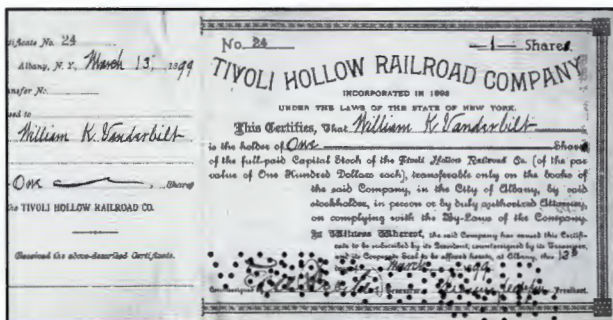 tificate No. 24
Albany, N. Y., March 13, 1899
nsfer No.
ued to
William K. Vanderbilt
One Shares
the TIVOLI HOLLOW RAILROAD CO.
Received the above-described Certificate.
No. 24 1 Shares
TIVOLI HOLLOW RAILROAD COMPANY
INCORPORATED IN 1898
UNDER THE LAWS OF THE STATE OF NEW YORK.
This Certifies, That William K. Vanderbilt
is the holder of One Shares
of the full-paid Capital Stock of the Tivoli Hollow Railroad Co. (of the par
value of One Hundred Dollars each), transferable only on the books of
the said Company, in the City of Albany, by said
stockholder, in person or by duly authorized Attorney,
on complying with the By-Laws of the Company.
In Witness Whereof, the said Company has caused this Certifi-
cate to be subscribed by its President, countersigned by its Treasurer,
and its Corporate Seal to be affixed hereto, at Albany, this 13th
March 1899
Countersigned Treasurer President.